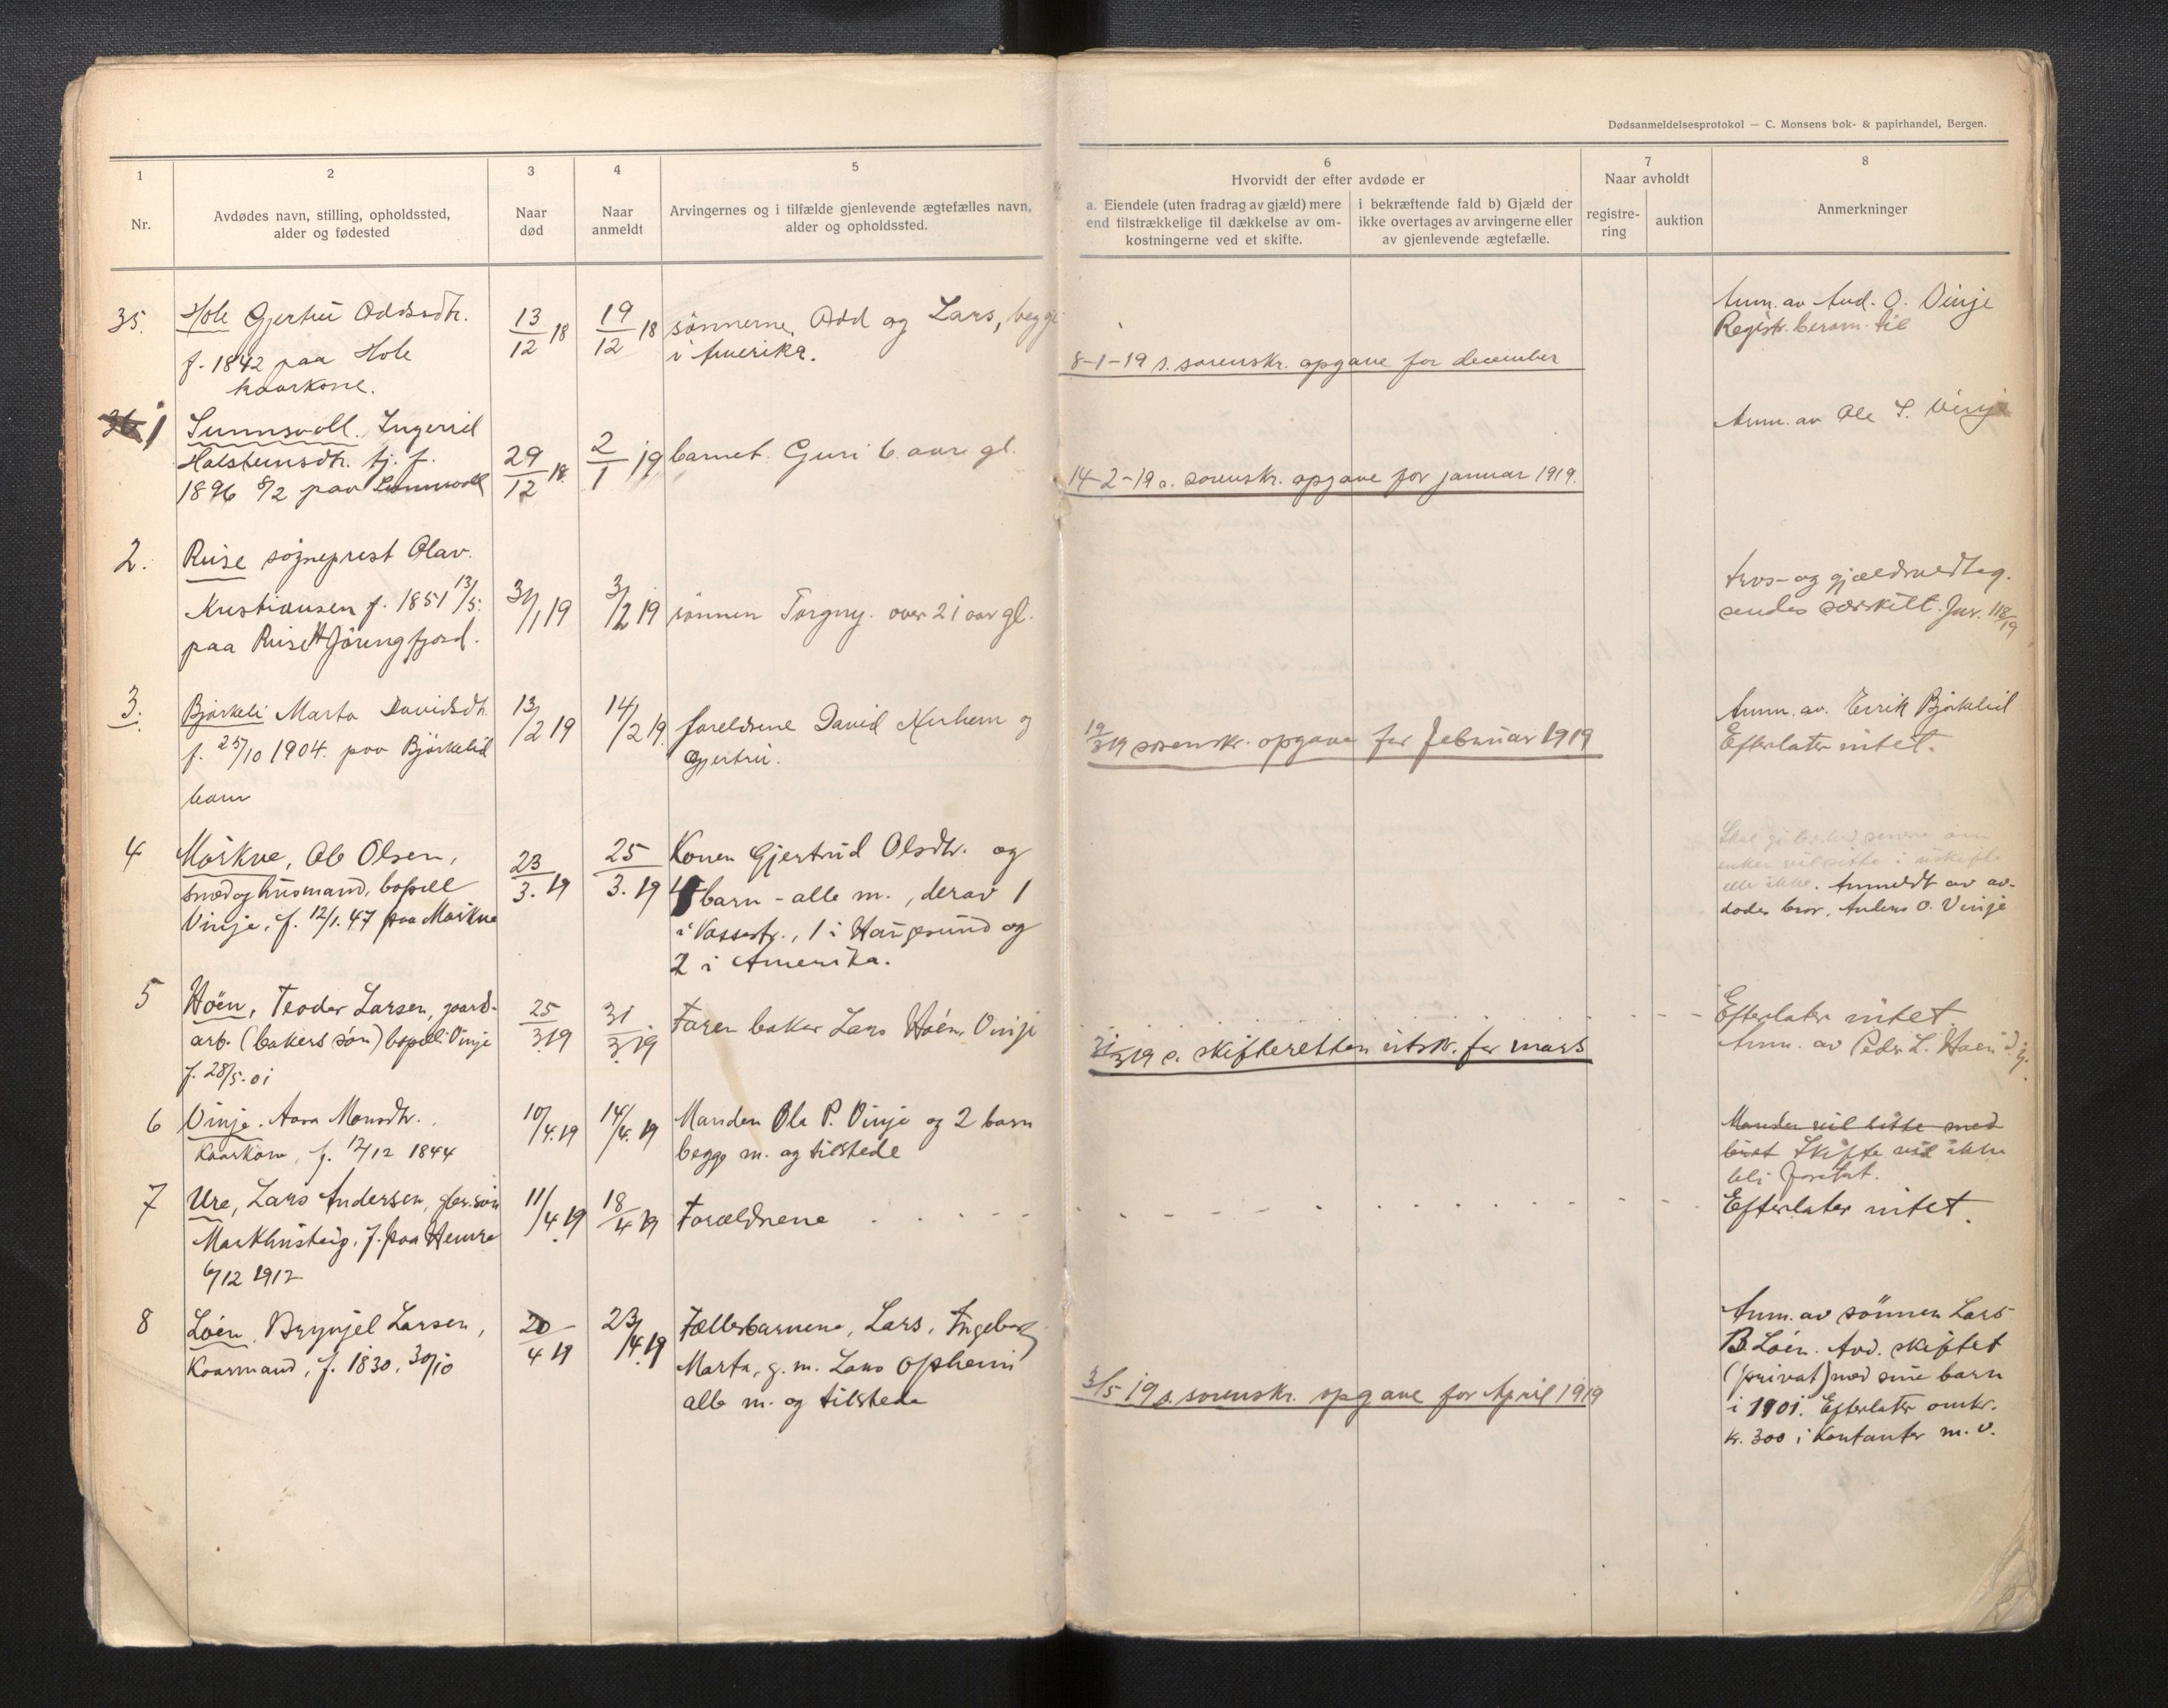 Dødsanmeldelsesprotokol — C. Monsens bok- & papirhandel, Bergen.
1
2
3
4
5
Nr.
Avdødes navn, stilling, opholdssted,
alder og fødested
Naar
død
Naar
anmeldt
Arvingernes og i tilfælde gjenlevende ægtefælles navn,
alder og opholdssted.
6
Hvorvidt der efter avdøde er
a. Eiendele (uten fradrag av gjæld) mere
end tilstrækkelige til dækkelse av om-
kostningerne ved et skifte.
i bekræftende fald b) Gjæld der
ikke overtages av arvingerne eller
av gjenlevende ægtefælle.
7
Naar avholdt
registre-
ring
auktion
8
Anmerkninger
35.
Hole Gjertrü Oddsdtr.
f. 1842 paa Hole
kaarkone.
13/12 18
19/12 18
sönnerne, Odd og Lars, begge
i Amerika.
8-1-19 s. sorenskr. opgave for december
Anm. av And. O. Vinje
Registr. beram. til
1
Sunnsvoll. Ingerid
Holsteinsdtr. tj. f.
1896 8/2 paa Sunnsvoll
29/12 18
2/1 19
barnet Guri 6 aar gl.
14-2-19 s. sorenskr. opgave for januar 1919.
Anm. av Ole S. Vinje
2.
Ruse sogneprest Olav
Kristiansen f. 1851 13/5
paa Ruse Hjörungfjord.
31/1 19
3/2 19
sönnen Torgny. over 21 aar gl.
Arvs- og gjældsvedtag.
sendes særskilt. Jnr. 118/19
3.
Björkeli Marta Davidsdtr.
f. 25/10 1904. paa Björkelid
barn
13/2 19
14/2 19
foreldrene David Nerheim og
Gjertrü.
19/3 19 sorenskr. opgave for Februar 1919
Anm. av. Eirik Björkelid
Efterlater intet.
4
Mörkve, Ole Olsen,
smed og husmand, bopæl
Vinje, f. 12/1. 47 paa Mörkve
23/3. 19
25/3. 19
Konen Gjertrud Olsdtr. og
4 barn - alle m., derav 1
i Vossestr., 1 i Haugesund og
2 i Amerika.
enken vil sitte i uskifte
eller ikke. Anmeldt av av-
dödes bror, Anders O. Vinje
5
Höen, Teodor Larsen, gaard-
arb. (bakers sön) bopæl: Vinje
f. 28/5. 01
25/3 19
31/3 19
Faren baker Lars Höen, Vinje
31/3 19 s. skifteretten utskr. for mars
Efterlater intet
Anm. av Peder L. Höen
6
Vinje. Aasa Monsdtr.
Kaarkone, f. 12/12 1844
10/4. 19
14/4. 19
Manden Ole P. Vinje og 2 barn
begge m. og tilstede
Manden vil sitte med
boet Skifte vil ikke
bli foretat.
7
Ure, Lars Andersen, for. sön
Markhusteig, f. paa Hemre
6/12 1912
11/4 19
18/4 19
Forældrene
Efterlater intet.
8
Löen, Brynjel Larsen,
Kaarmand, f. 1830, 30/10
20/4 19
23/4. 19
Fællesbarnene, Lars, Ingeborg
Marta, g. m. Lars Opheim
alle m. og tilstede
3/5 19 s. sorenskr. opgave for April 1919
Anm. av sönnen Lars
B. Löen. Avd. skiftet
(privat) med sine barn
i 1901. Efterlater omkr.
kr. 300 i kontanter m. v.